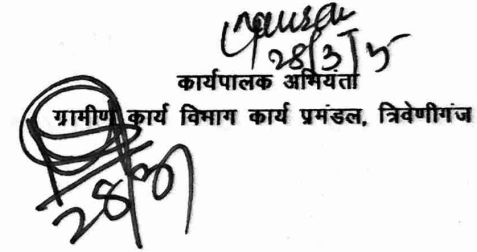 28/3/5
कार्यपालक अभियंता
ग्रामीण कार्य विभाग कार्य प्रमंडल, त्रिवेणीगंज
28/3